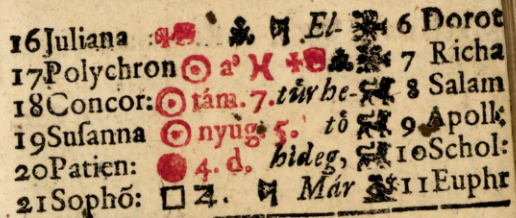 16 Juliana El- 6 Dorot
17 Polychron ☉ a' ♓ 7 Richa
18 Concor: ☉ tám. 7. tůrhe- 8 Salam
19 Suſanna ☉ nyug. 5. tô 9 Apolk:
20 Patien: 4. d. hideg, 10 Schol:
21 Sophõ: □ 4. Már 11 Euphr